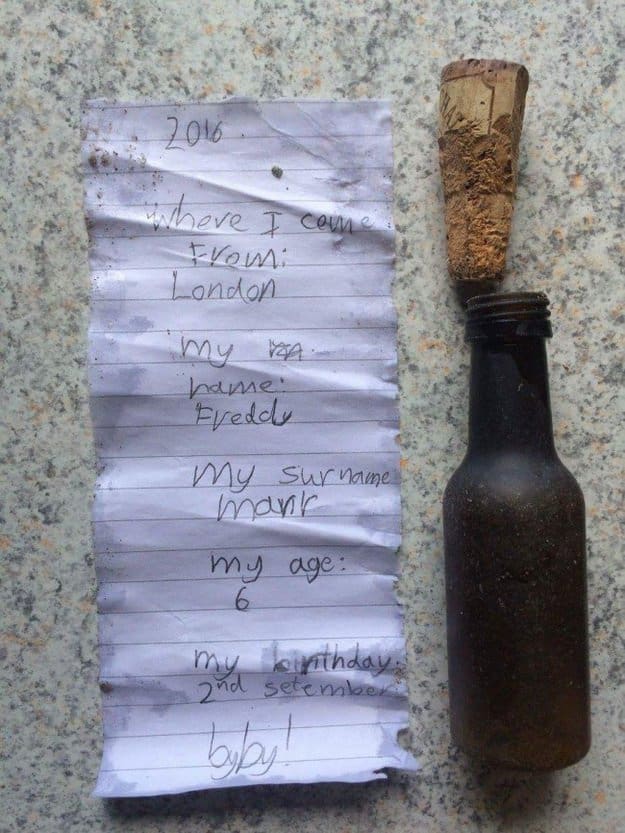 2016
Where I come
From:
London
my
name:
Freddy
My surname
manr
my age:
6
my birthday:
2nd setember
byby!